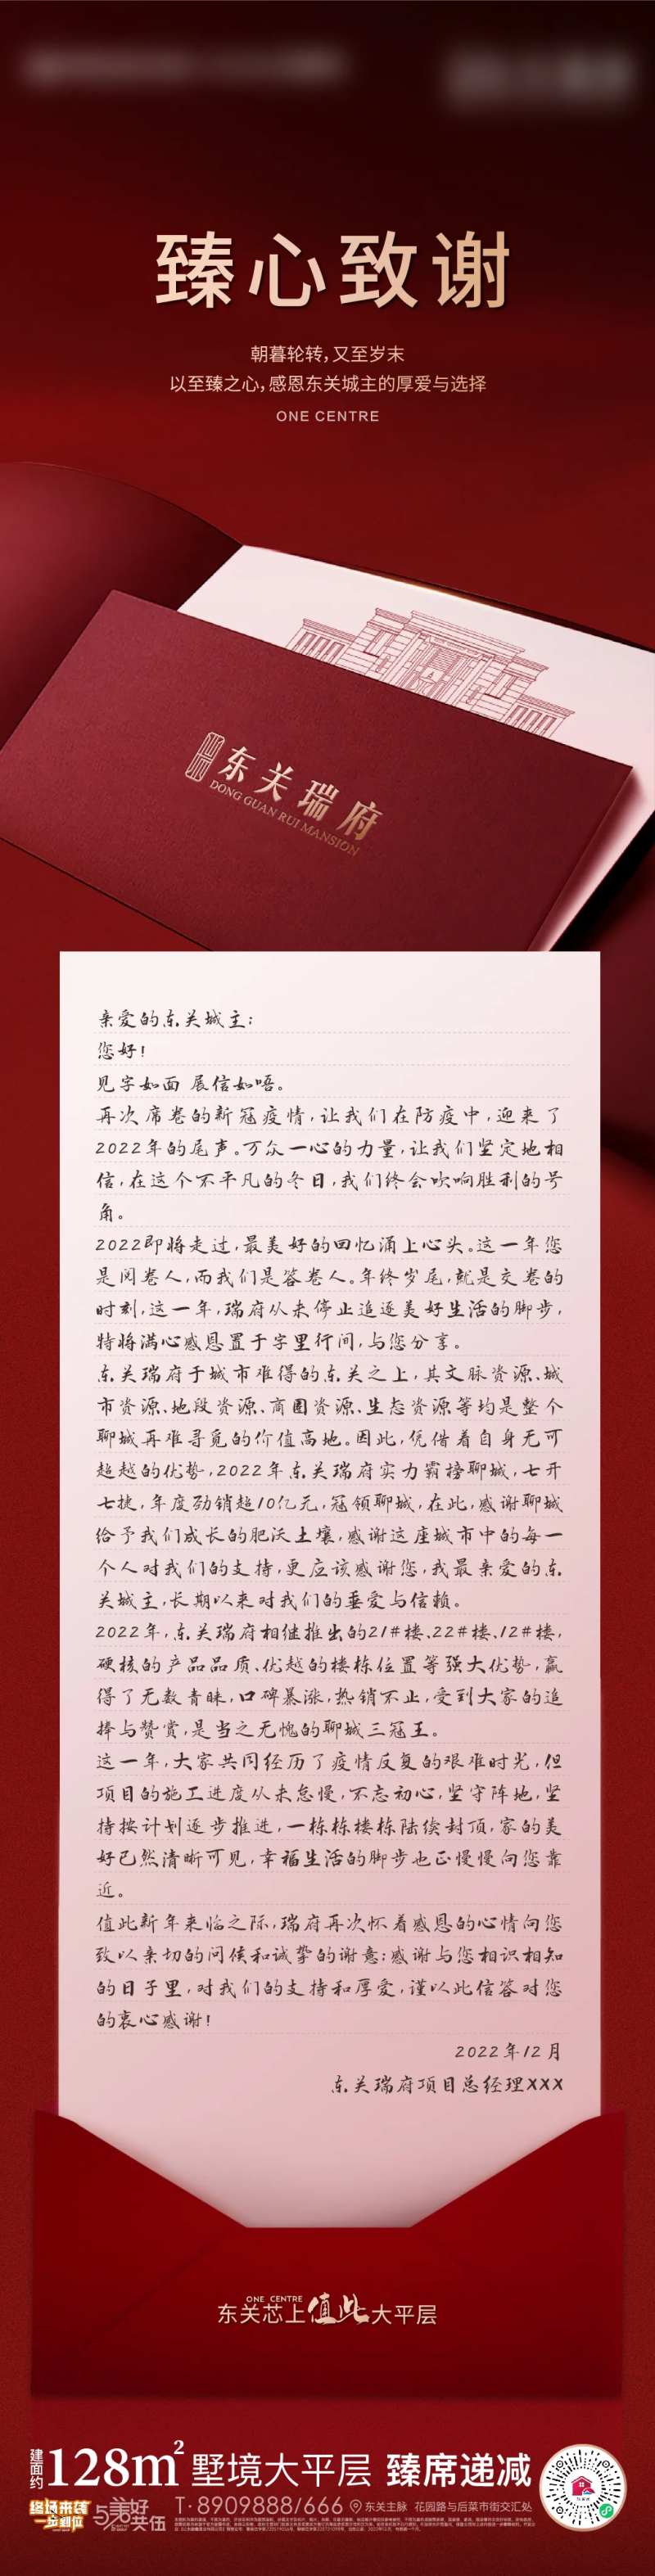 臻心致谢
朝暮轮转,又至岁末
以至臻之心,感恩东关城主的厚爱与选择
ONE CENTRE
东关瑞府
DONG GUAN RUI MANSION
亲爱的东关城主:
您好!
见字如面 展信如唔。
再次席卷的新冠疫情,让我们在防疫中,迎来了
2022年的尾声。万众一心的力量,让我们坚定地相
信,在这个不平凡的冬日,我们终会吹响胜利的号
角。
2022即将走过,最美好的回忆涌上心头。这一年您
是阅卷人,而我们是答卷人。年终岁尾,就是交卷的
时刻,这一年,瑞府从未停止追逐美好生活的脚步,
特将满心感恩置于字里行间,与您分享。
东关瑞府于城市难得的东关之上,其文脉资源、城
市资源、地段资源、商圈资源、生态资源等均是整个
聊城再难寻觅的价值高地。因此,凭借着自身无可
超越的优势,2022年东关瑞府实力霸榜聊城,七开
七捷,年度劲销超10亿元,冠领聊城,在此,感谢聊城
给予我们成长的肥沃土壤,感谢这座城市中的每一
个人对我们的支持,更应该感谢您,我最亲爱的东
关城主,长期以来对我们的垂爱与信赖。
2022年,东关瑞府相继推出的21#楼、22#楼、12#楼,
硬核的产品品质、优越的楼栋位置等强大优势,赢
得了无数青睐,口碑暴涨,热销不止,受到大家的追
捧与赞赏,是当之无愧的聊城三冠王。
这一年,大家共同经历了疫情反复的艰难时光,但
项目的施工进度从未怠慢,不忘初心,坚守阵地,坚
持按计划逐步推进,一栋栋楼栋陆续封顶,家的美
好已然清晰可见,幸福生活的脚步也正慢慢向您靠
近。
值此新年来临之际,瑞府再次怀着感恩的心情向您
致以亲切的问候和诚挚的谢意:感谢与您相识相知
的日子里,对我们的支持和厚爱,谨以此信答对您
的衷心感谢!
2022年12月
东关瑞府项目总经理XXX
ONE CENTRE
东关芯上值此大平层
建面约128m²墅境大平层 臻席递减
终场来袭
一步到位
与美好共伍
T·8909888/666 东关主脉 花园路与后菜市街交汇处